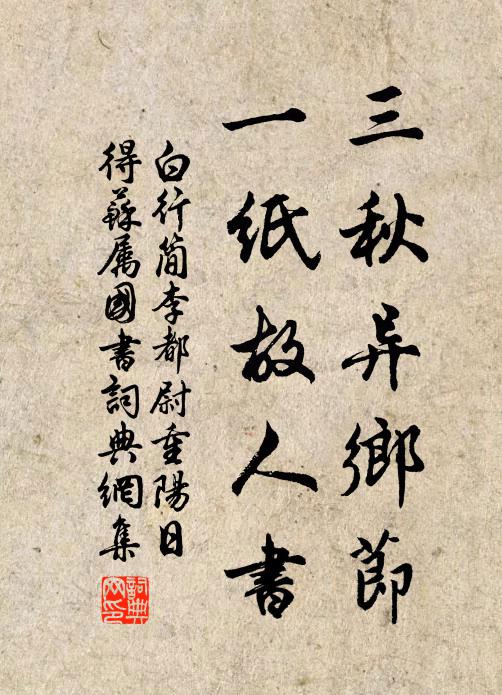 三秋异鄉節
一紙故人書
白行简李都尉重陽日
得蘇属國書詞典網集
詞典
网印